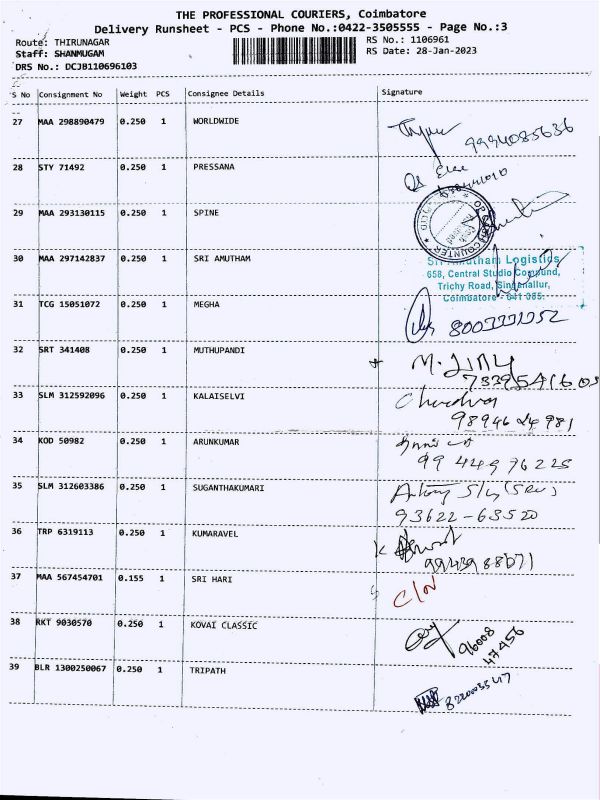 THE PROFESSIONAL COURIERS, Coimbatore
Delivery Runsheet - PCS - Phone No.:0422-3505555 - Page No.:3
Route: THIRUNAGAR RS No.: 1106961
Staff: SHANMUGAM RS Date: 28-Jan-2023
DRS No.: DCJB110696103
S No Consignment No Weight PCS Consignee Details Signature
27 MAA 298890479 0.250 1 WORLDWIDE
9994085636
28 STY 71492 0.250 1 PRESSANA
29 MAA 293130115 0.250 1 SPINE
COUNTER
30 MAA 297142837 0.250 1 SRI AMUTHAM
Sri Amutham Logistics
658, Central Studio Compound,
Trichy Road, Singanallur,
Coimbatore - 641 005.
31 TCG 15051072 0.250 1 MEGHA
32 SRT 341408 0.250 1 MUTHUPANDI
33 SLM 312592096 0.250 1 KALAISELVI
98946 24 981
34 KOD 50982 0.250 1 ARUNKUMAR
99 449 76225
35 SLM 312603386 0.250 1 SUGANTHAKUMARI
93622-63520
36 TRP 6319113 0.250 1 KUMARAVEL
37 MAA 567454701 0.155 1 SRI HARI
38 RKT 9030570 0.250 1 KOVAI CLASSIC
96008
47456
39 BLR 1300250067 0.250 1 TRIPATH